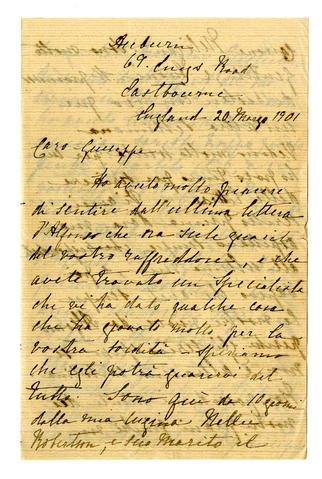 Auburn
Kings Road
Eastbourne
England 20. Marzo 1901
Caro Giuseppe
Ho avuto molto piacere
di sentire dall' ultima lettera
d'Alfonso che ora siete guarito
del vostro raffreddore, e che
avete trovato un specialista
che vi ha dato qualche cosa
che ha giovato molto per la
vostra sordità – speriamo
che egli potrà guarirvi del
tutto. Sono qui da 10 giorni
dalla mia cugina Nellie
Robertson, e suo marito il